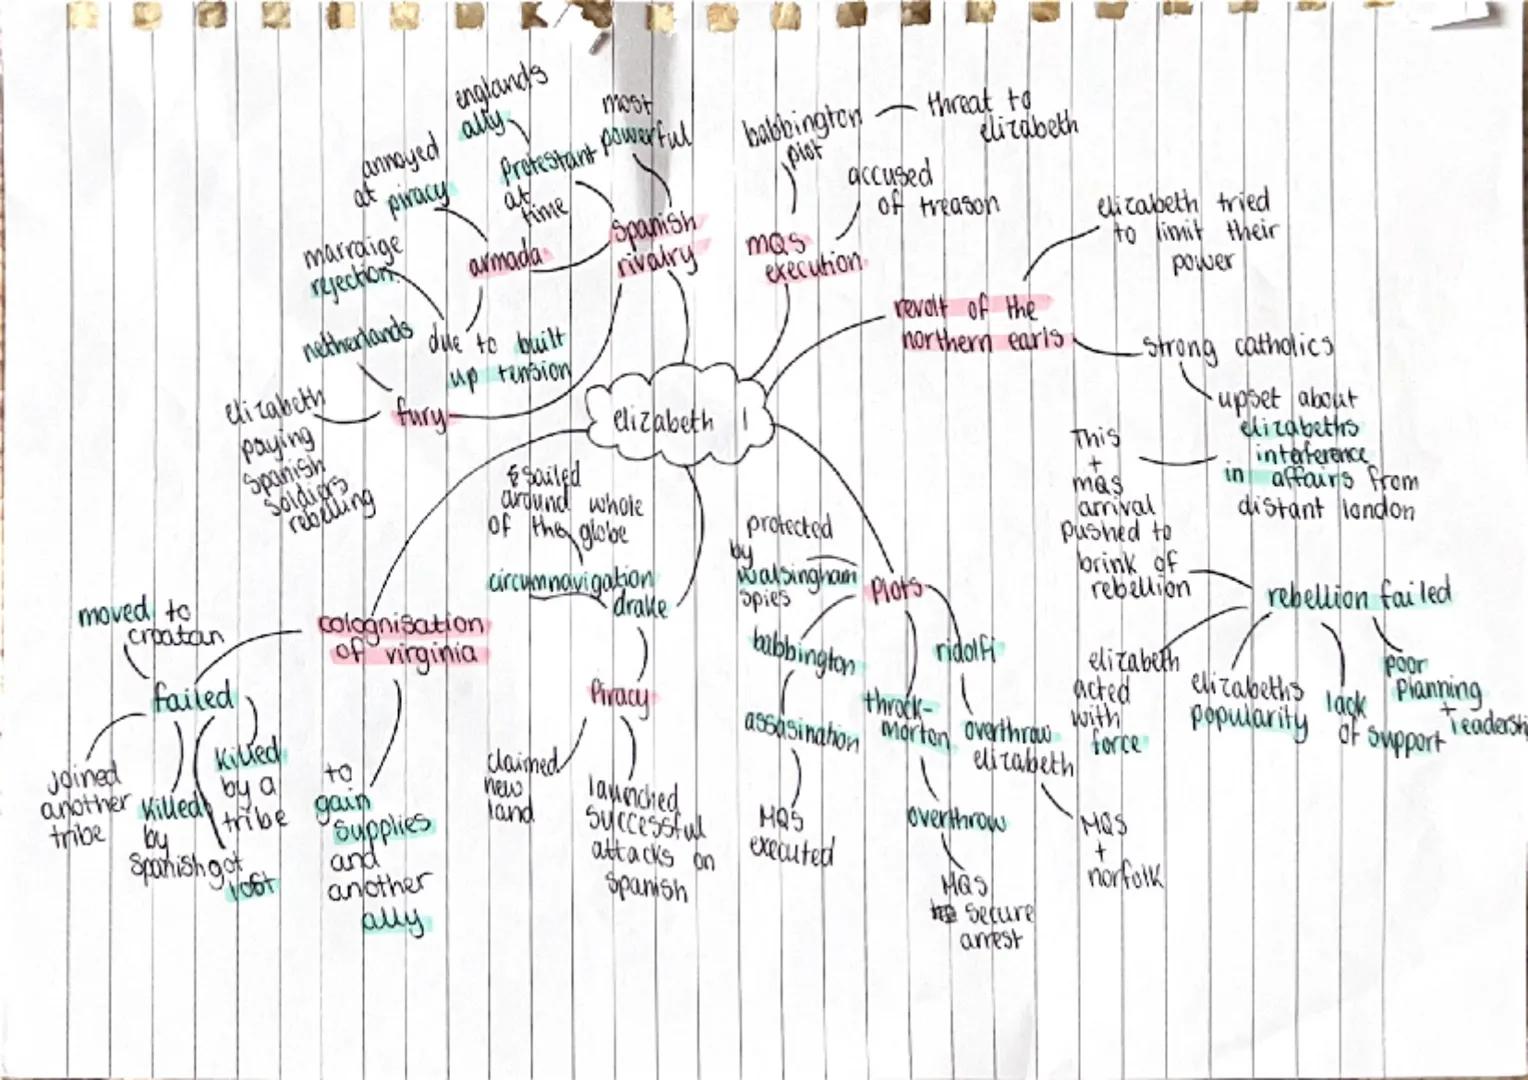 elizabeth 1
spanish
rivalry
most
powerful
protestant
at
time
englands
ally
armada
annoyed
at piracy
due to built
up tension
marraige
rejection
fury
netherlands
elizabeth
paying
spanish
soldiers
rebelling
MQS
execution
babbington
plot
threat to
elizabeth
accused
of treason
revolt of the
northern earls
elizabeth tried
to limit their
power
strong catholics
upset about
elizabeths
interference
in affairs from
distant london
This
+
mqs
arrival
pushed to
brink of
rebellion
rebellion failed
elizabeth
acted
with
force
elizabeths
popularity
lack
of support
poor
planning
+
leadership
plots
protected
by
walsingham
spies
babbington
assasination
MQS
executed
throck-
morton
overthrow
MQS
secure
arrest
ridolfi
overthrow
elizabeth
MQS
+
norfolk
drake
circumnavigation
& sailed
around whole
of the globe
piracy
claimed
new
land
launched
successful
attacks on
spanish
colognisation
of virginia
failed
moved to
croatan
joined
another
tribe
killed
by
spanish
got
lost
killed
by a
tribe
to
gain
supplies
and
another
ally